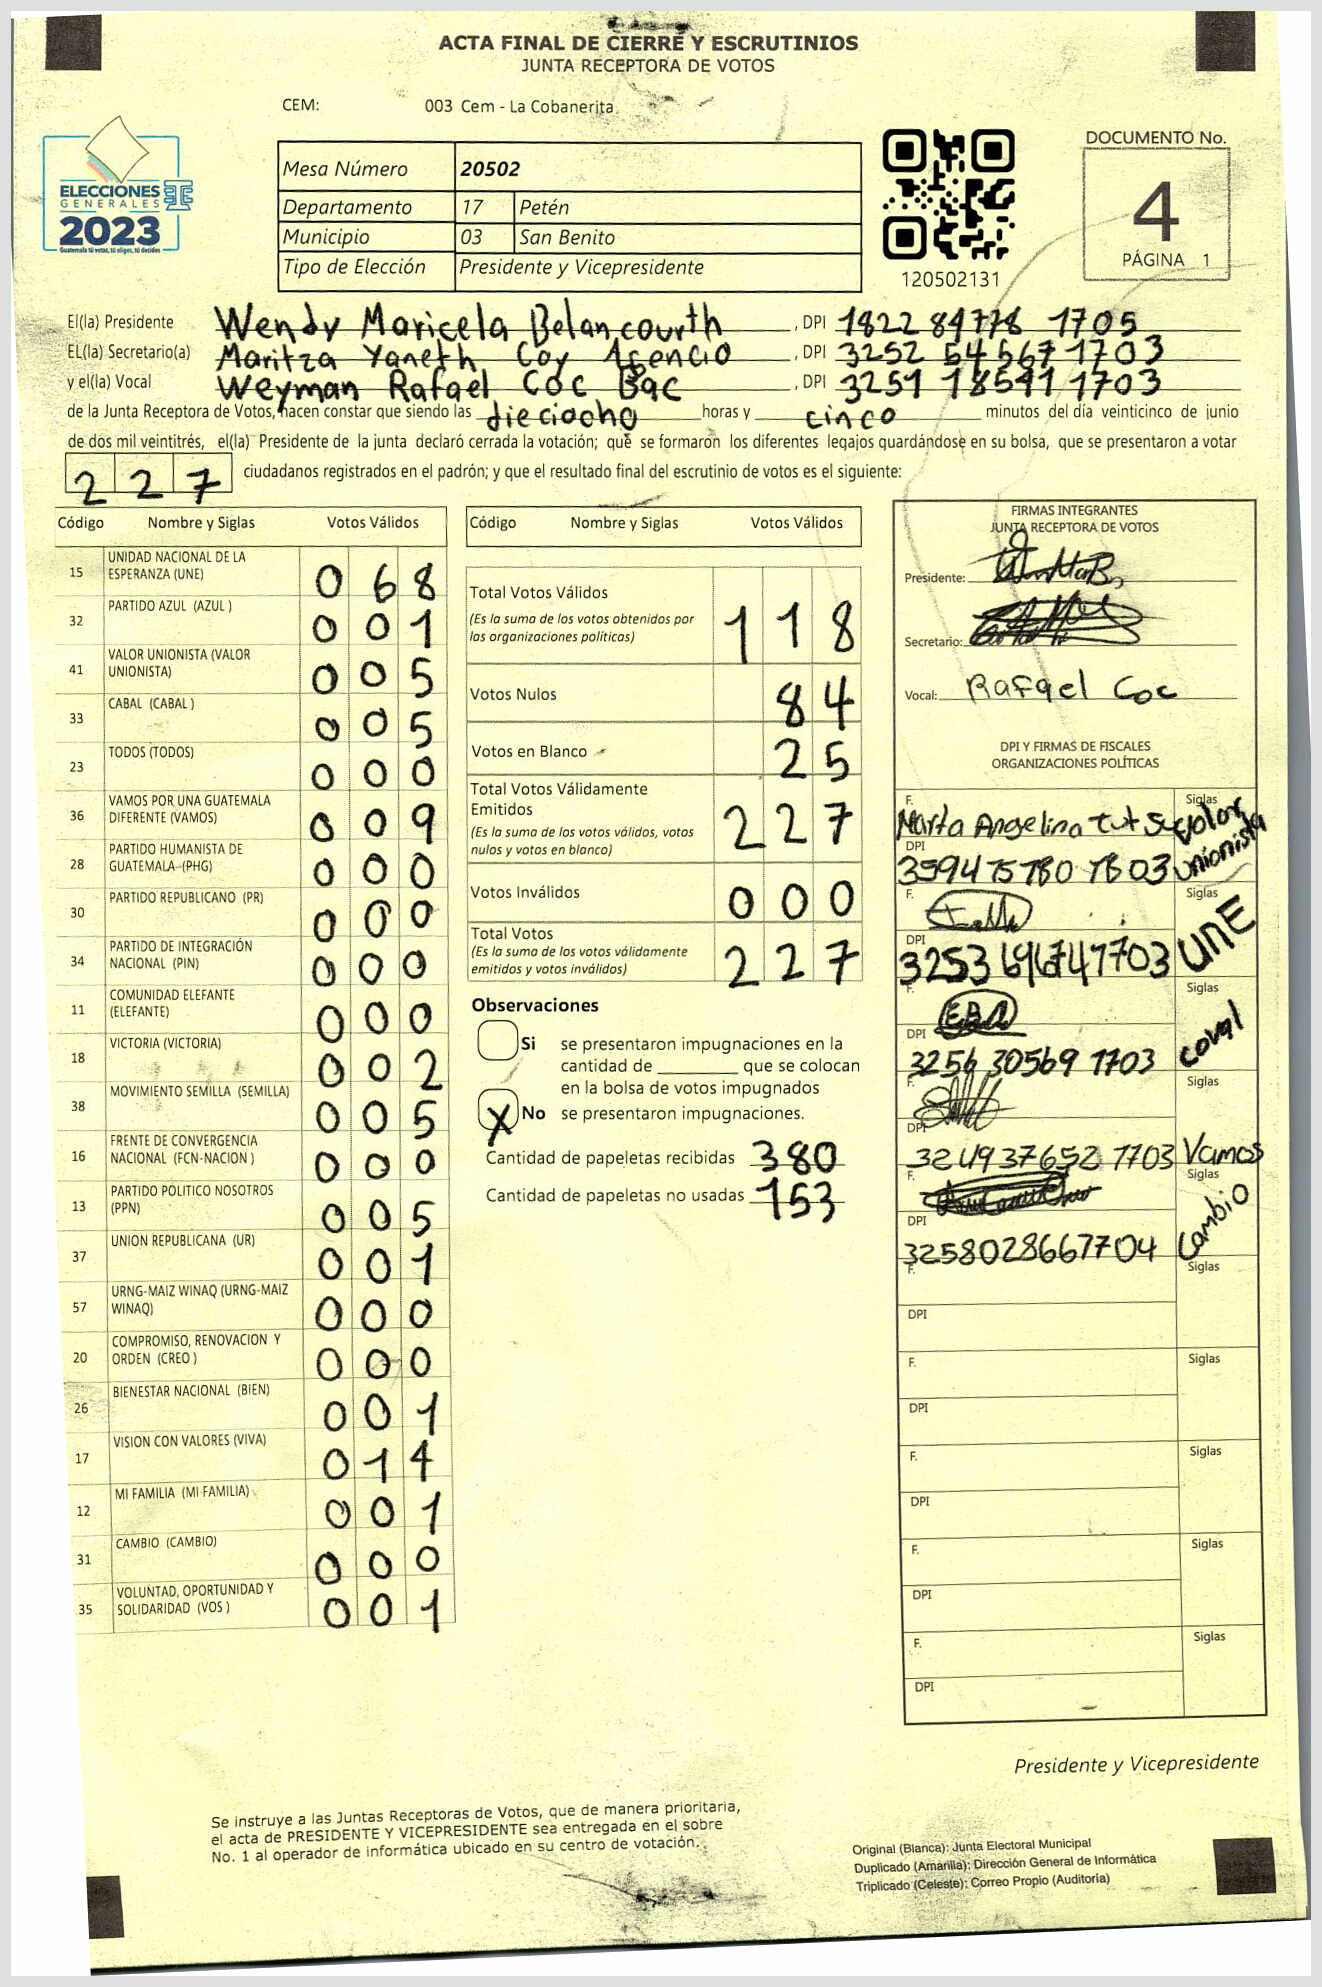 ACTA FINAL DE CIERRE Y ESCRUTINIOS
JUNTA RECEPTORA DE VOTOS
CEM: 003 Cem - La Cobanerita
ELECCIONES
GENERALES
2023
Guatemala tú votas, tú eliges, tú decides
Mesa Número 20502
Departamento 17 Petén
Municipio 03 San Benito
Tipo de Elección Presidente y Vicepresidente
120502131
DOCUMENTO No.
4
PÁGINA 1
El(la) Presidente Wendy Maricela Belancourth, DPI 1822 84778 1705
EL(la) Secretario(a) Maritza Yaneth Coy Asencio, DPI 3252 54567 1703
y el(la) Vocal Weyman Rafael Coc Bac, DPI 3251 18591 1703
de la Junta Receptora de Votos, hacen constar que siendo las dieciocho horas y cinco minutos del día veinticinco de junio
de dos mil veintitrés, el(la) Presidente de la junta declaró cerrada la votación; que se formaron los diferentes legajos guardándose en su bolsa, que se presentaron a votar
227 ciudadanos registrados en el padrón; y que el resultado final del escrutinio de votos es el siguiente:
Código Nombre y Siglas Votos Válidos
15 UNIDAD NACIONAL DE LA ESPERANZA (UNE) 068
32 PARTIDO AZUL (AZUL ) 001
41 VALOR UNIONISTA (VALOR UNIONISTA) 005
33 CABAL (CABAL ) 005
23 TODOS (TODOS) 000
36 VAMOS POR UNA GUATEMALA DIFERENTE (VAMOS) 009
28 PARTIDO HUMANISTA DE GUATEMALA (PHG) 000
30 PARTIDO REPUBLICANO (PR) 000
34 PARTIDO DE INTEGRACIÓN NACIONAL (PIN) 000
11 COMUNIDAD ELEFANTE (ELEFANTE) 000
18 VICTORIA (VICTORIA) 002
38 MOVIMIENTO SEMILLA (SEMILLA) 005
16 FRENTE DE CONVERGENCIA NACIONAL (FCN-NACION ) 000
13 PARTIDO POLITICO NOSOTROS (PPN) 005
37 UNION REPUBLICANA (UR) 001
57 URNG-MAIZ WINAQ (URNG-MAIZ WINAQ) 000
20 COMPROMISO, RENOVACION Y ORDEN (CREO ) 000
26 BIENESTAR NACIONAL (BIEN) 001
17 VISION CON VALORES (VIVA) 014
12 MI FAMILIA (MI FAMILIA) 001
31 CAMBIO (CAMBIO) 000
35 VOLUNTAD, OPORTUNIDAD Y SOLIDARIDAD (VOS ) 001
Código Nombre y Siglas Votos Válidos
Total Votos Válidos 118
(Es la suma de los votos obtenidos por
las organizaciones políticas)
Votos Nulos 84
Votos en Blanco 25
Total Votos Válidamente
Emitidos 227
(Es la suma de los votos válidos, votos
nulos y votos en blanco)
Votos Inválidos 000
Total Votos 227
(Es la suma de los votos válidamente
emitidos y votos inválidos)
Observaciones
Si se presentaron impugnaciones en la
cantidad de ________ que se colocan
en la bolsa de votos impugnados
X No se presentaron impugnaciones.
Cantidad de papeletas recibidas 380
Cantidad de papeletas no usadas 153
FIRMAS INTEGRANTES
JUNTA RECEPTORA DE VOTOS
Presidente:
Secretario:
Vocal: Rafael Coc
DPI Y FIRMAS DE FISCALES
ORGANIZACIONES POLÍTICAS
F. Marta Angelina Tut Su Siglas Valor Unionista
DPI 3594 75780 1803
F. Siglas UNE
DPI 3253 69674 1703
F. Siglas
DPI 3256 30569 1703
F. Siglas Vamos
DPI 3249376521703
F. Siglas Cambio
DPI 3258028667704
F. Siglas
DPI
F. Siglas
DPI
F. Siglas
DPI
F. Siglas
DPI
F. Siglas
DPI
Presidente y Vicepresidente
Se instruye a las Juntas Receptoras de Votos, que de manera prioritaria,
el acta de PRESIDENTE Y VICEPRESIDENTE sea entregada en el sobre
No. 1 al operador de informática ubicado en su centro de votación.
Original (Blanca): Junta Electoral Municipal
Duplicado (Amarilla): Dirección General de Informática
Triplicado (Celeste): Correo Propio (Auditoría)